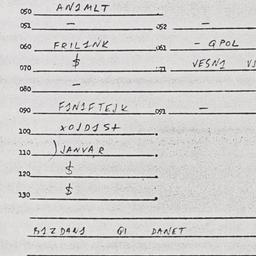 050 AN1MLT
051 — 052 —
060 FRIL1NK 061 - GPOL
070 $ 71 VESN1
080 —
090 F1N1FTEJK 091 —
100
110 JANVAR
120 $
130 $
GI DANET